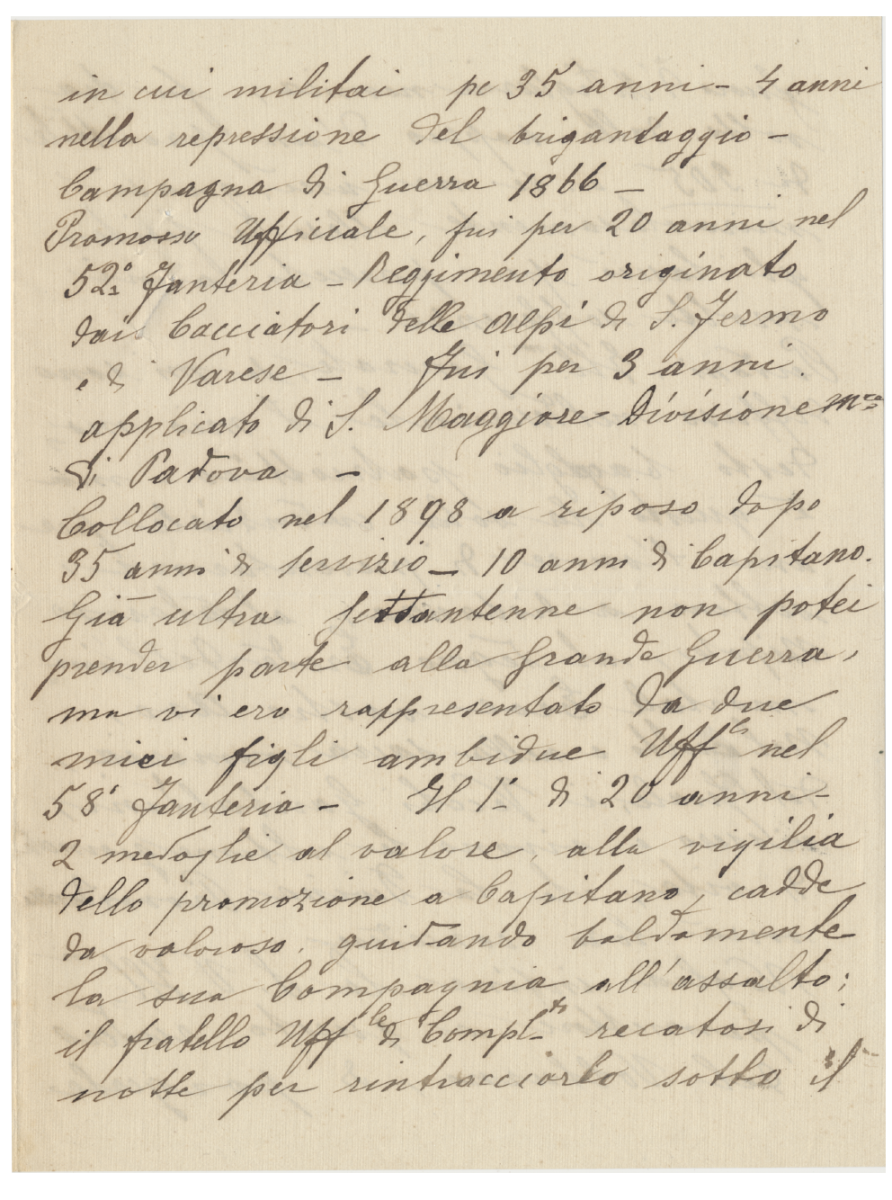 in cui militai pe 35 anni - 4 anni
nella repressione del brigantaggio -
Campagna di Guerra 1866 -
Promosso Ufficiale, fui per 20 anni nel
52º Fanteria - Reggimento originato
dai Cacciatori delle Alpi di S. Fermo
e di Varese - Fui per 3 anni.
applicato di S. Maggiore Divisione
di Padova -
Collocato nel 1898 a riposo dopo
35 anni di servizio - 10 anni di Capitano.
Già ultra settantenne non potei
prender parte alla Grande Guerra,
ma vi ero rappresentato da due
miei figli ambidue Uffli nel
58º Fanteria - Il 1º di 20 anni -
2 medaglie al valore, alla vigilia
della promozione a Capitano, cadde
da valoroso. guidando baldamente
la sua Compagnia all'assalto;
il fratello Uffle di Complto recatosi di
notte per rintracciarlo sotto il